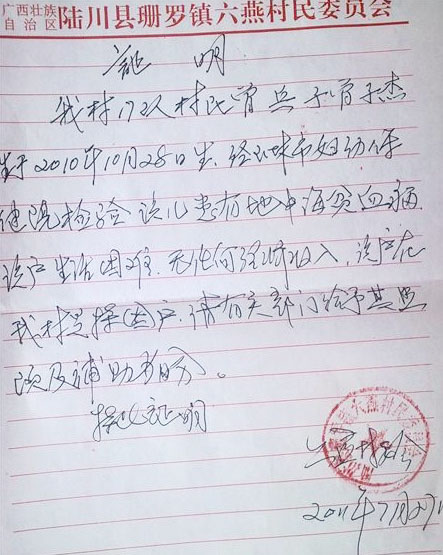 广西壮族
自治区 陆川县珊罗镇六燕村民委员会
证明
我村17队村民曾兵子曾子杰
生于2010年10月28日生,经玉林市妇幼保
健院检验该儿患有地中海贫血病.
该户生活困难.无任何经济收入,该户在
我村是特困户.请有关部门给予其照
顾及补助为盼。
特此证明
六燕村委会
2011年7月27日